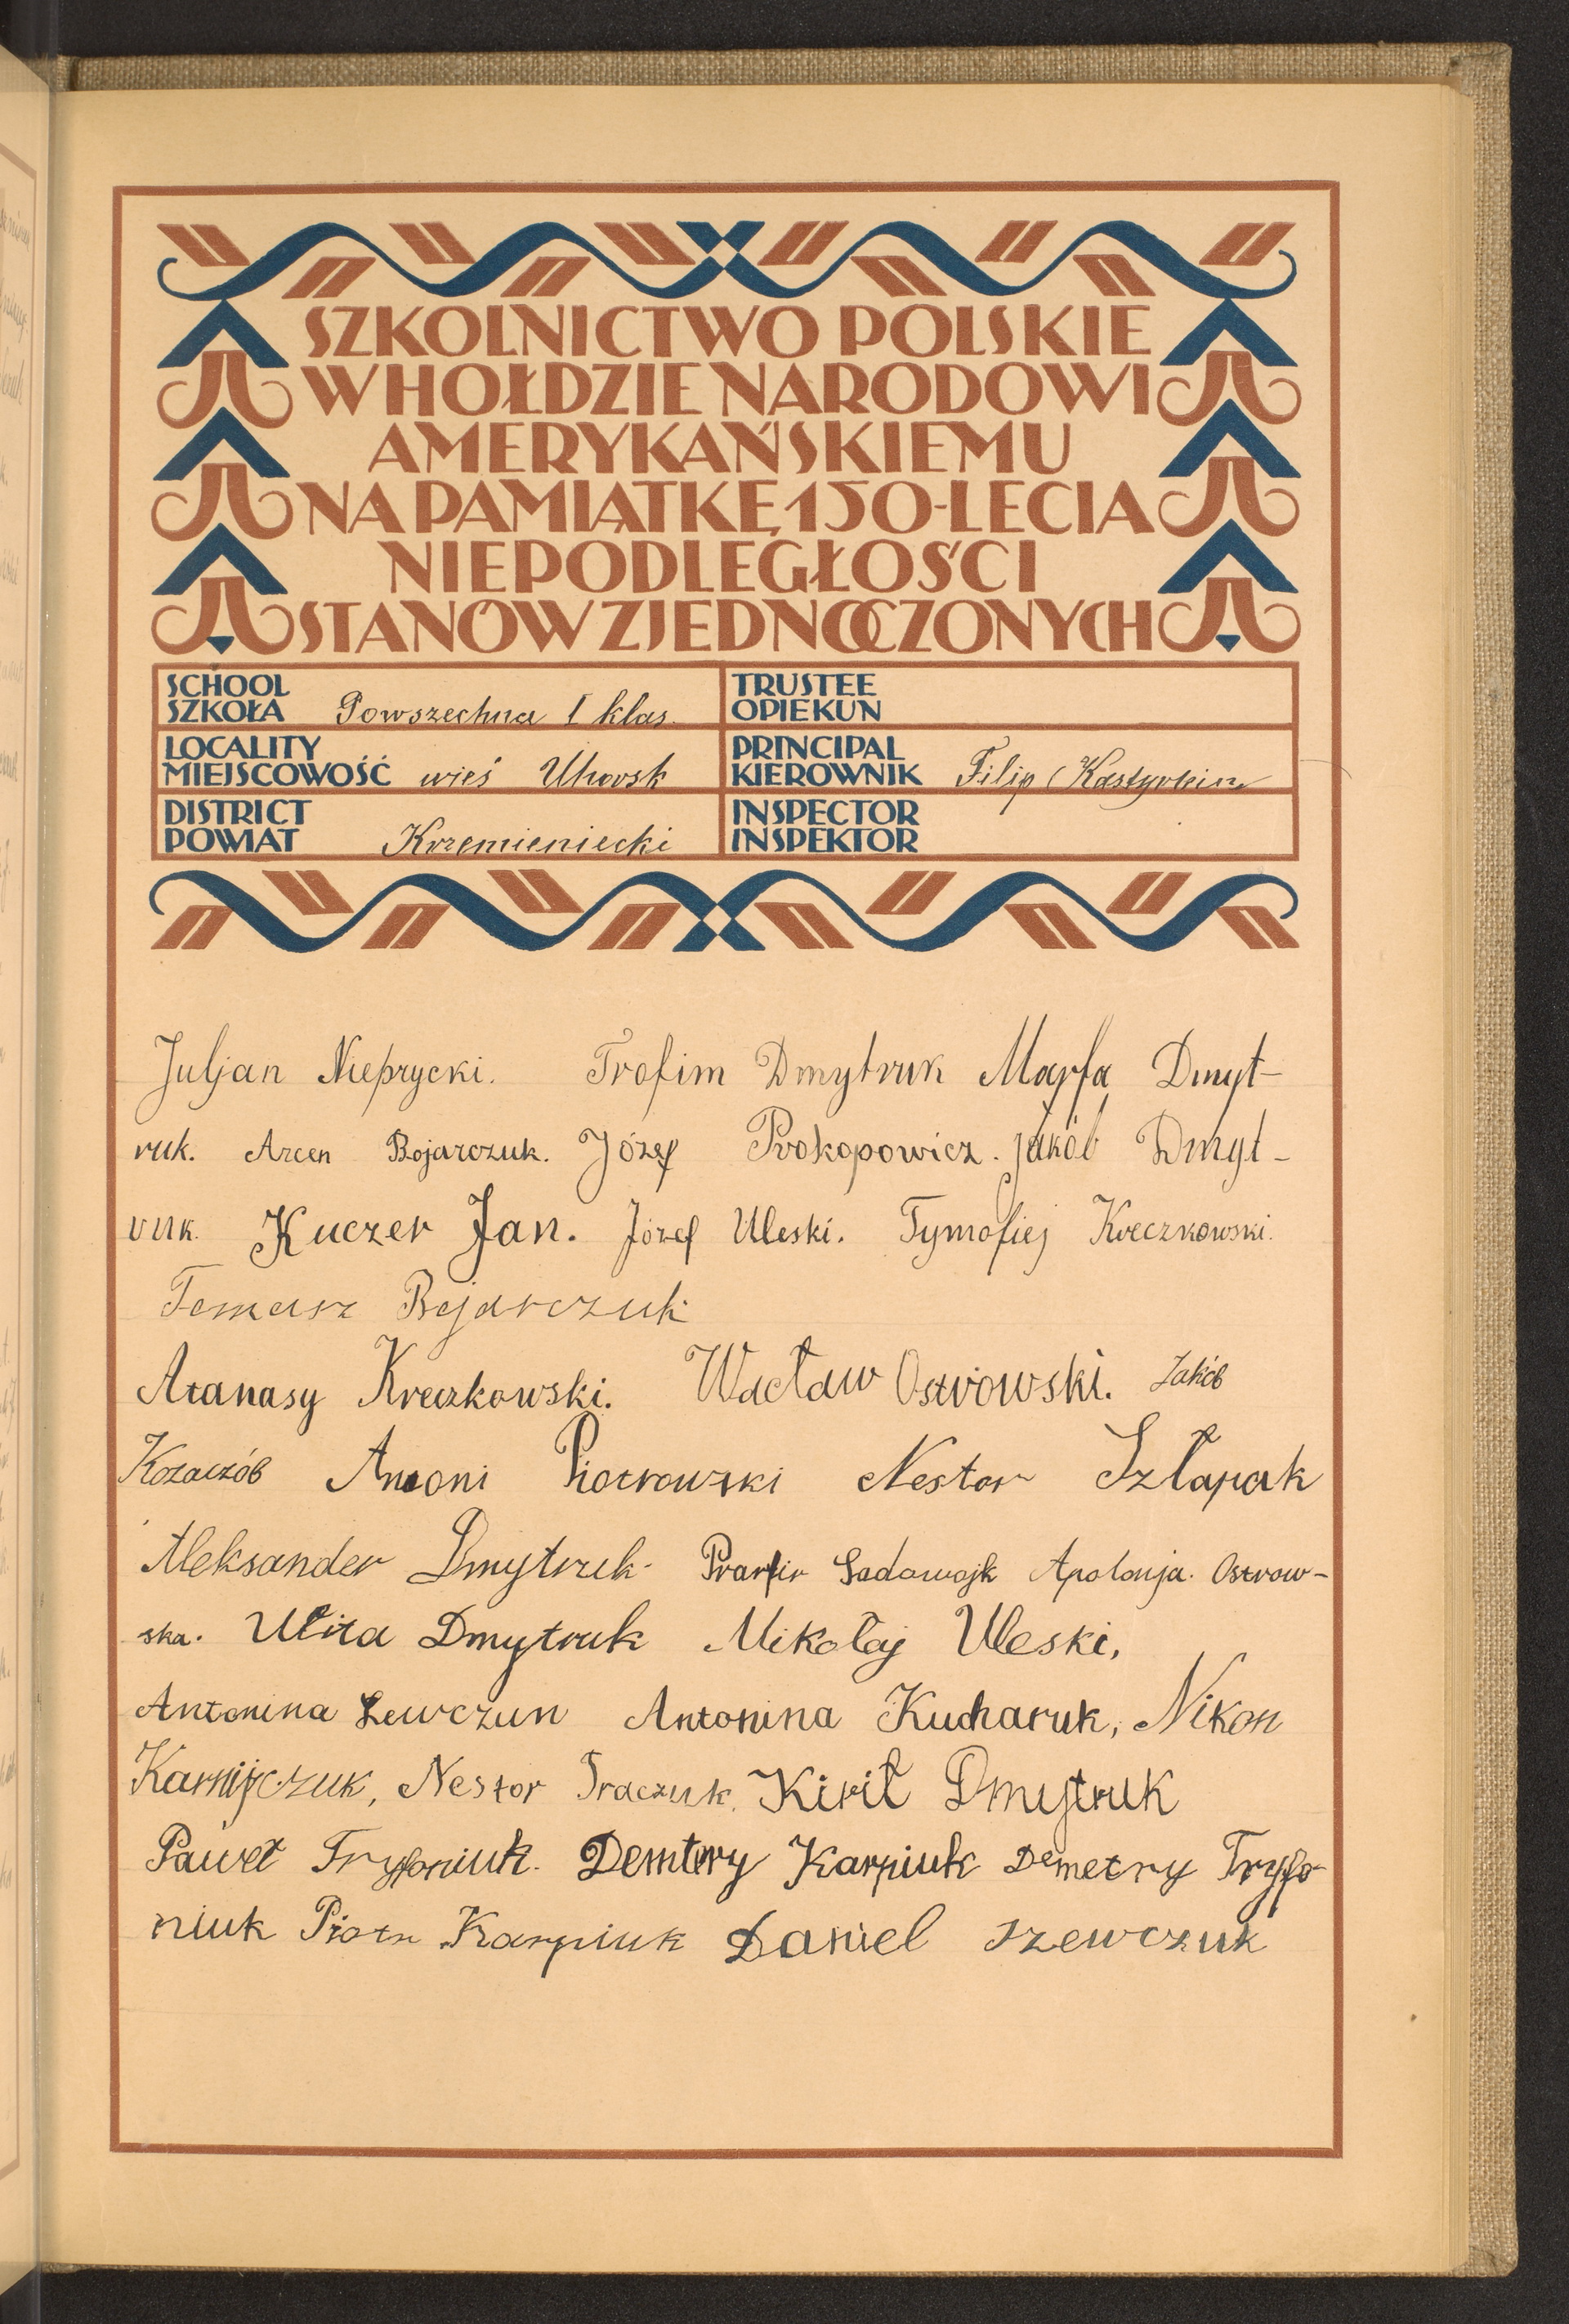 SZKOLNICTWO POLSKIE
W HOŁDZIE NARODOWI
AMERYKAŃSKIEMU
NA PAMIĄTKĘ 150-LECIA
NIEPODLEGŁOŚCI
STANÓW ZJEDNOCZONYCH
SCHOOL
SZKOŁA Powszechna I klas.
TRUSTEE
OPIEKUN
LOCALITY
MIEJSCOWOŚĆ wieś Uhorsk
PRINCIPAL
KIEROWNIK Filip
DISTRICT
POWIAT Krzemieniecki
INSPECTOR
INSPEKTOR
Juljan Nieprycki. Trofim Dmytruk Marfa Dmyt-
ruk. Arcen Bojarczuk. Józef Prokopowicz. Jakób Dmyt-
ruk. Kuczer Jan. Józef Uleski. Tymofiej Kreczkowski.
Tomasz Bojarczuk
Atanasy Kreczkowski. Wacław Ostrowski. Jakób
Antoni Piotrowski Nestor Szłapak
Aleksander Dmytruk. Sadowajk Apolonja. Ostrow-
ska. Ulita Dmytruk Mikołaj Uleski,
Antonina Lewczun Antonina Kucharuk, Nikon
Nestor Traczuk, Kirił Dmytruk
Paweł Tryfoniuk. Karpiuk Demetry Tryfo-
niuk Piotr Karpiuk Daniel Szewczuk